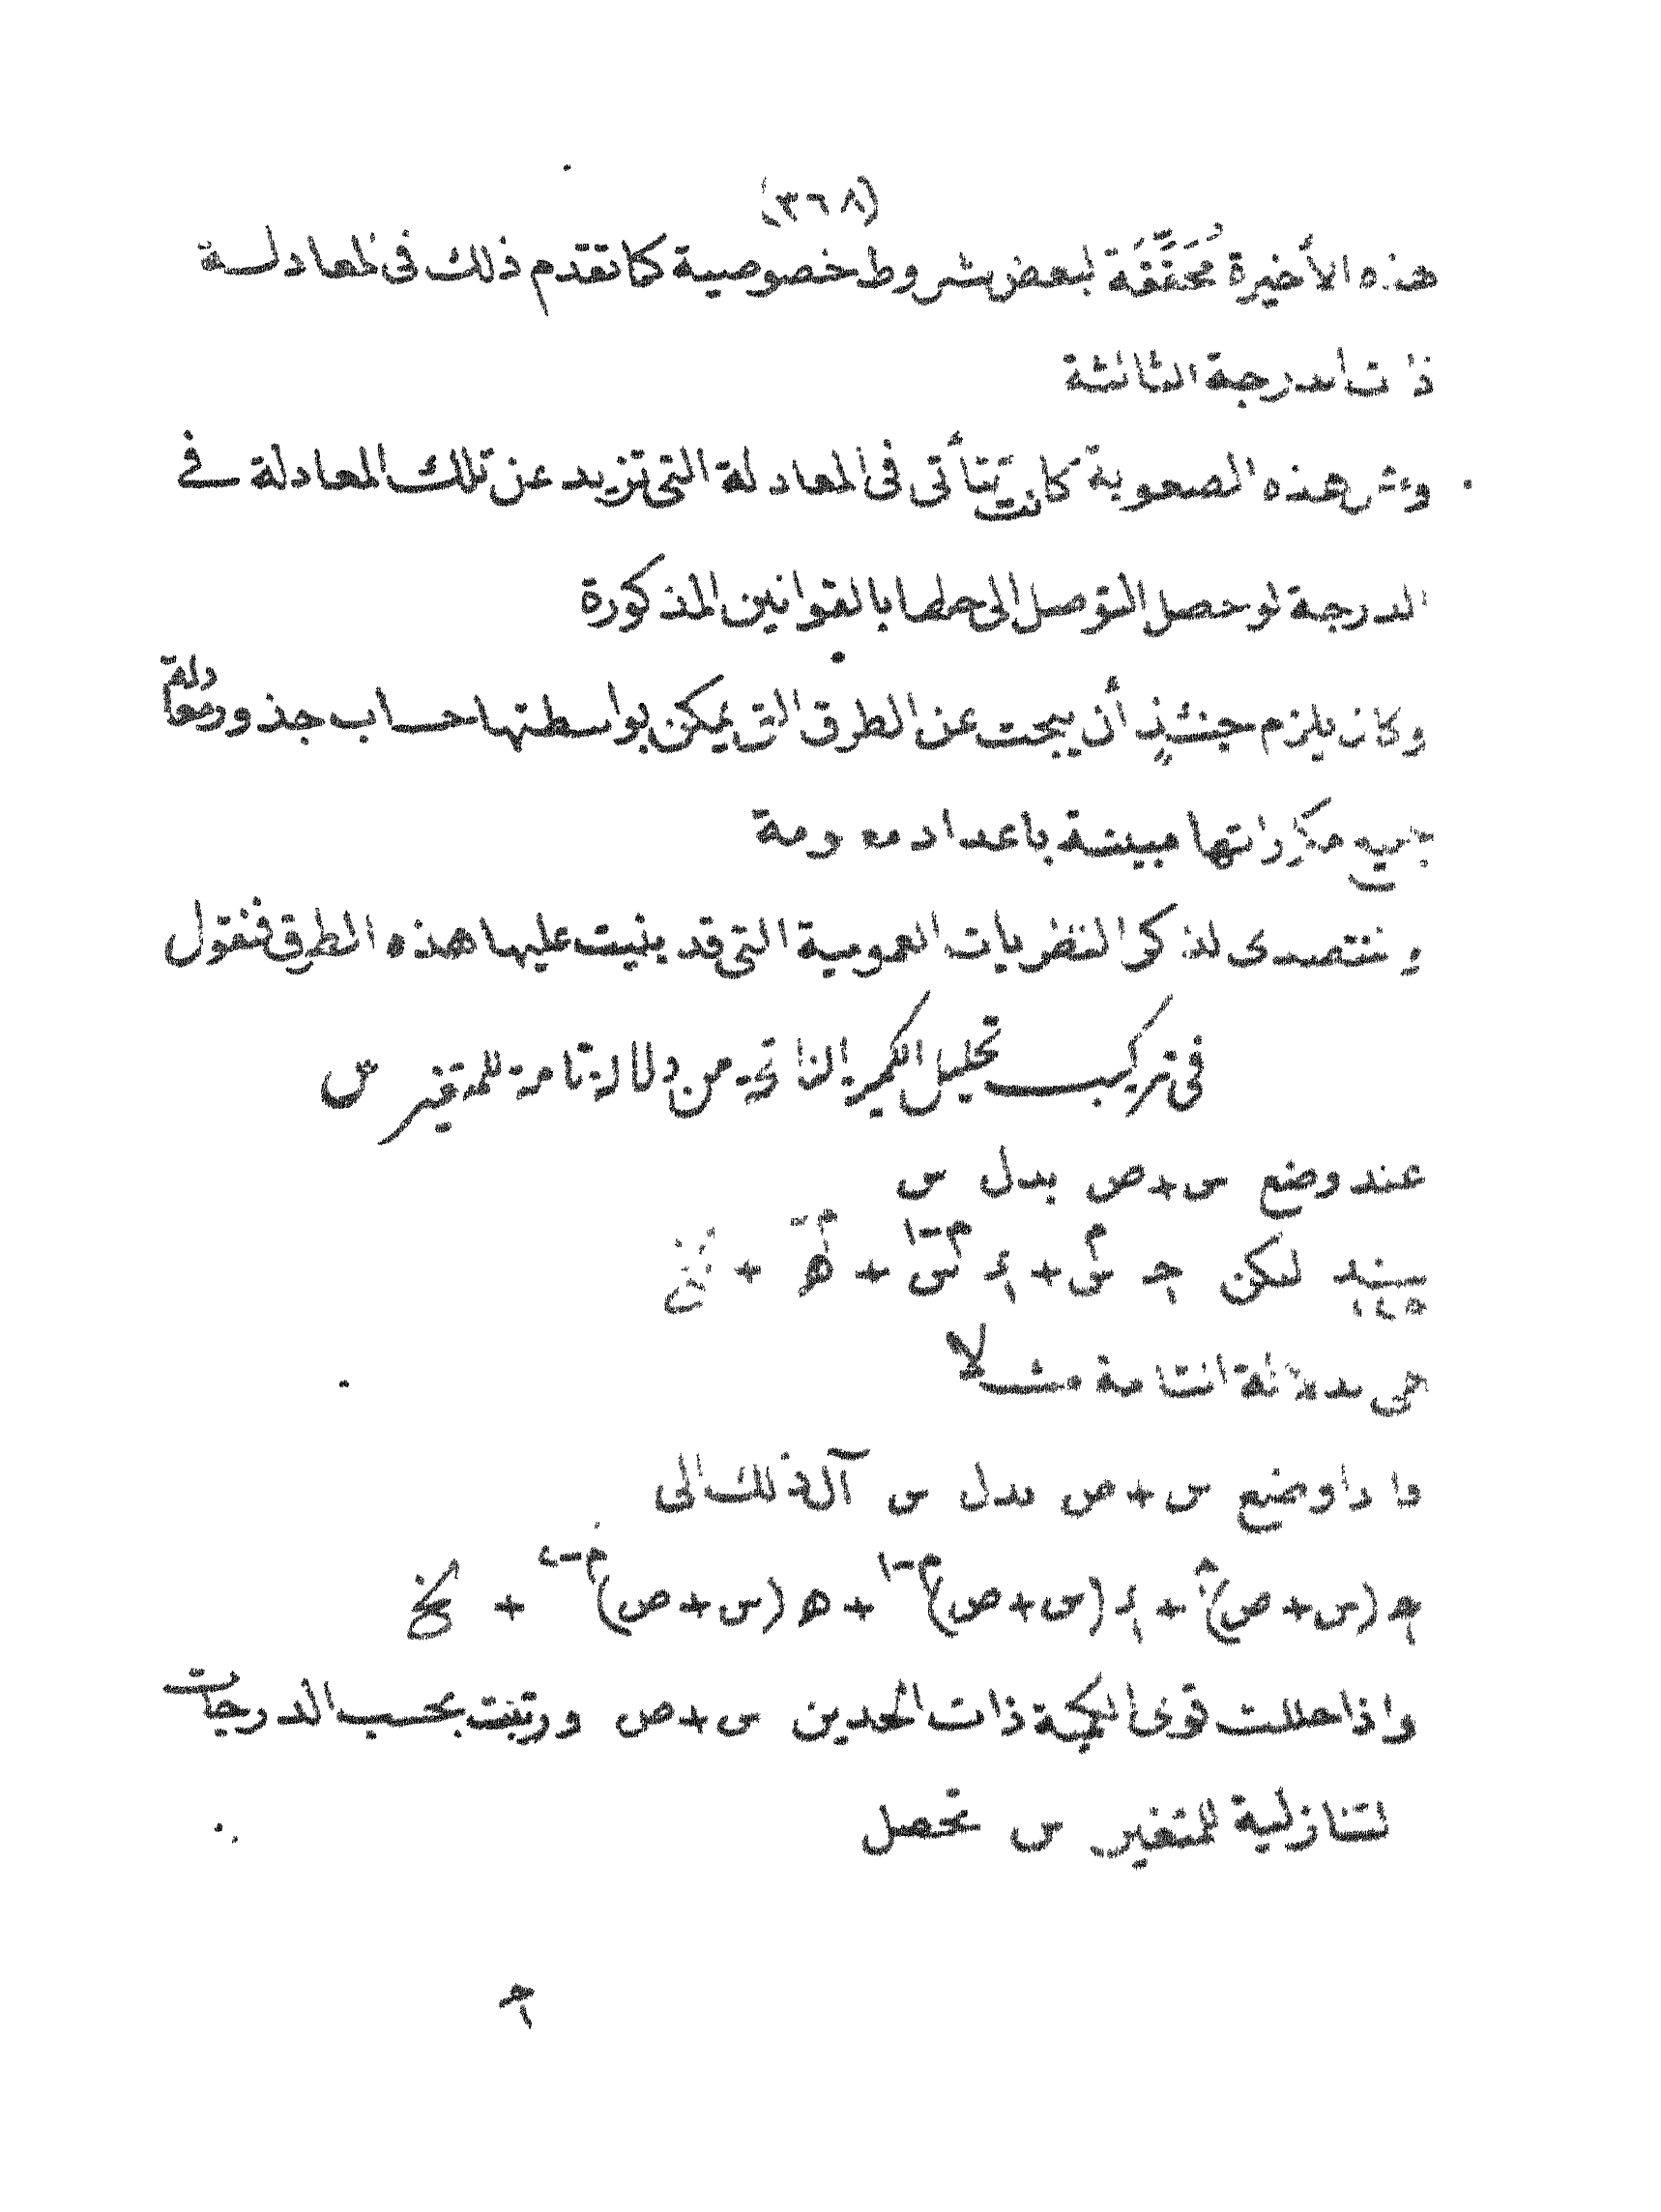 (٣٦٨)
هذه الأخيرة مُحَقَّقَة لبعض شروط خصوصية كما تقدم ذلك فى المعادلة
ذات الدرجة الثالثة
ومثل هذه الصعوبة كانت تتأتى فى المعادلة التى تزيد عن تلك المعادلة فى
الدرجة لو حصل التوصل الى حلها بالقوانين المذكورة
وكان يلزم حينئذٍ أن يبحث عن الطرق التى يمكن بواسطتها حساب جذور معادلة
جميع مكرراتها مبينة باعداد معلومة
ولنتصدى لذكر النظريات العمومية التى قد بنيت عليها هذه الطرق فنقول
فى تركيب تحليل الكمية الناتجة من دالة تامة للمتغير س
عند وضع س+ص بدل س
بند لتكن ج س^م + ء س^م-١ + ه س^م-٢ + الخ
٢٤٥
هى الدالة التامة مثلا
واذا وضع س+ص بدل س آل ذلك الى
ج (س+ص)^م + ء (س+ص)^م-١ + ه (س+ص)^م-٢ + الخ
واذا حللت قوى الكمية ذات الحدين س+ص ورتبت بحسب الدرجات
لتنازلية للمتغير س تحصل
ج